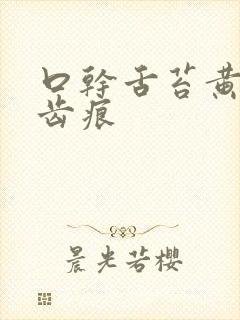 口幹舌苔黄
齿痕
晨光若櫻